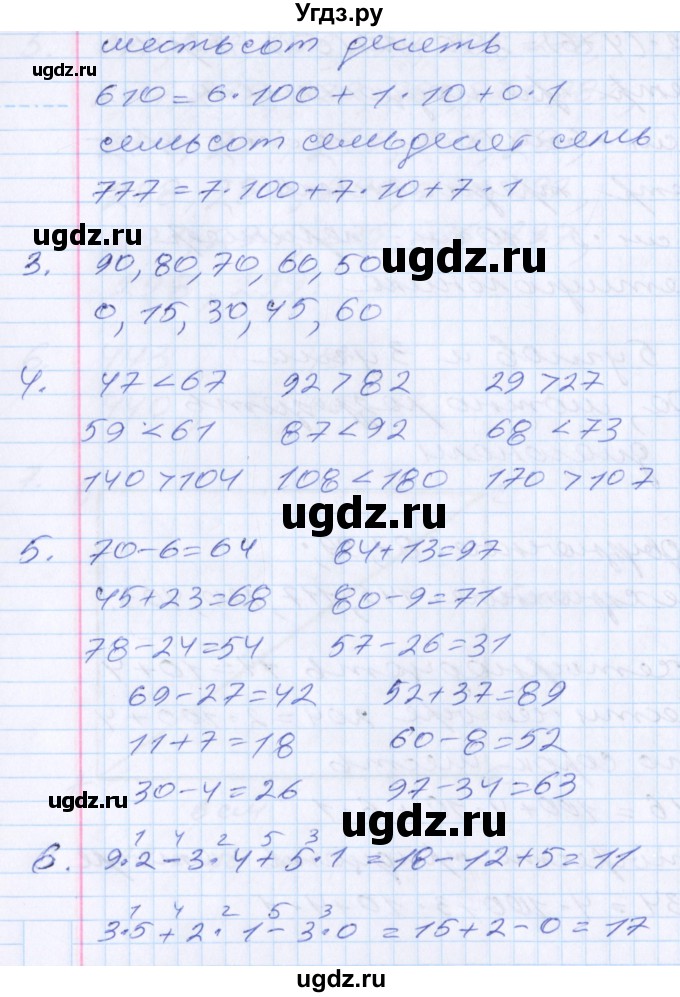 Угдз.ру
шестьсот десять
ugdz.ru
610 = 6·100 + 1·10 + 0·1
семьсот семьдесят семь
777 = 7·100 + 7·10 + 7·1
ugdz.ru ugdz.ru
3. 90, 80, 70, 60, 50
0, 15, 30, 45, 60
ugdz.ru
4. 47 < 67 92 > 82 29 > 27
59 < 61 87 < 92 68 < 73
140 > 104 108 < 180 170 > 107
ugdz.ru
ugdz.ru
5. 70 - 6 = 64 84 + 13 = 97
45 + 23 = 68 80 - 9 = 71
78 - 24 = 54 57 - 26 = 31
69 - 27 = 42 52 + 37 = 89
11 + 7 = 18 60 - 8 = 52
30 - 4 = 26 97 - 34 = 63
ugdz.ru
ugdz.ru
1 4 2 5 3
6. 9·2 - 3·4 + 5·1 = 18 - 12 + 5 = 11
1 4 2 5 3
3·5 + 2·1 - 3·0 = 15 + 2 - 0 = 17
ugdz.ru
ugdz.ru